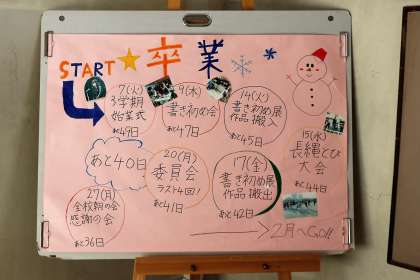 START ★ 卒業
7(火)
3学期
始業式
あと49日
9(木)
書き初め会
あと47日
14(火)
書き初め展
作品搬入
あと45日
15(水)
長縄とび
大会
あと44日
17(金)
書き初め展
作品搬出
あと42日
20(月)
委員会
ラスト4回!
あと41日
あと40日
27(月)
全校朝の会
感謝の会
あと36日
2月へGO!!